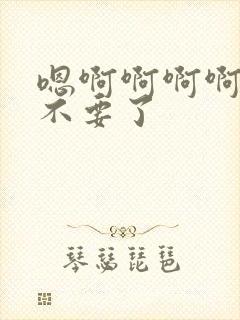 嗯啊啊啊啊
不要了
琴瑟琵琶